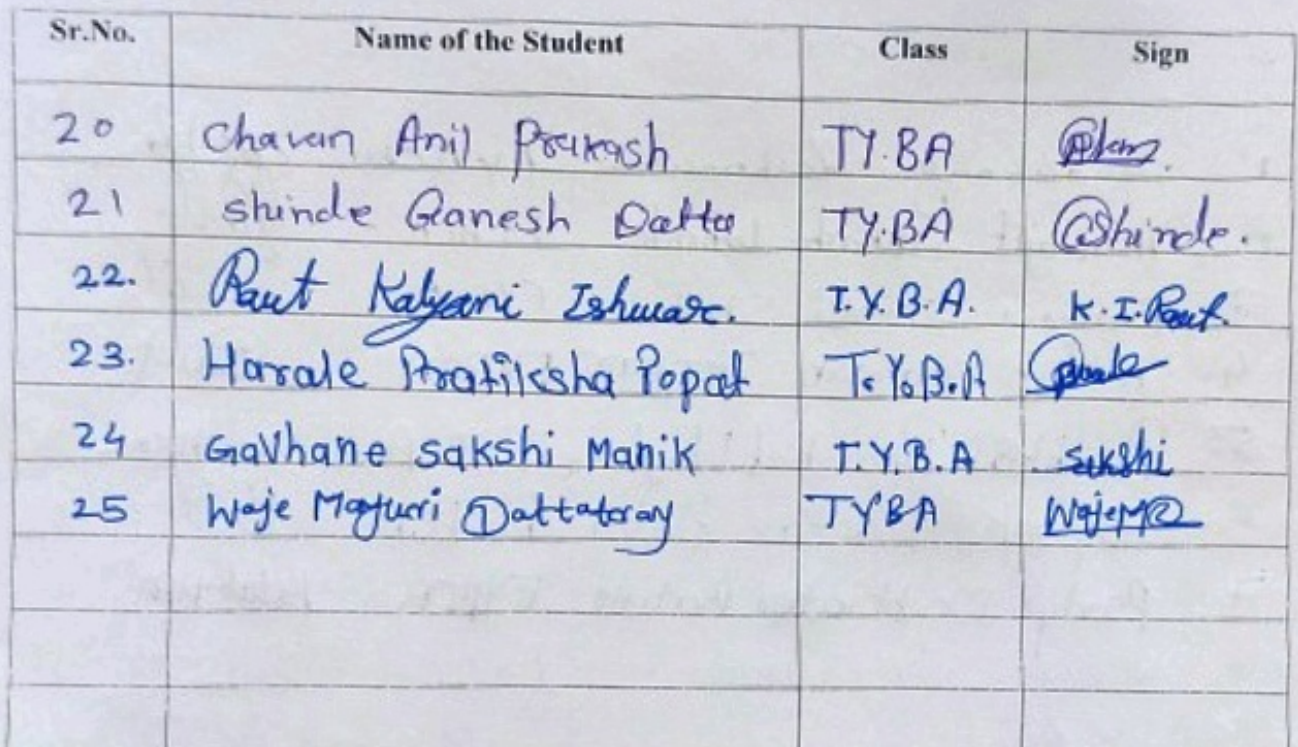 Sr.No. Name of the Student Class Sign
20 Chavan Anil Prakash TY.BA
21 shinde Ganesh Datta TY.BA @Shinde.
22. Raut Kalyani Ishwar. T.Y.B.A. K.I.Raut.
23. Harale Pratiksha Popat T.Y.B.A
24 Gavhane sakshi Manik T.Y.B.A sakshi
25 Waje Mayuri Dattatray TYBA